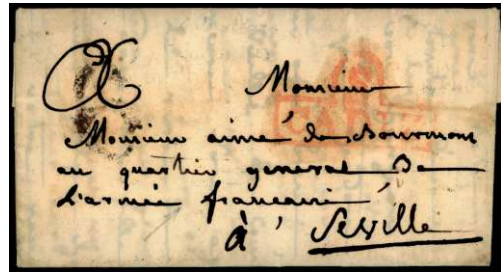 A
Monsieur
Monsieur aimé de Bourmont
au quartier general De
L'armée francaise
à Seville